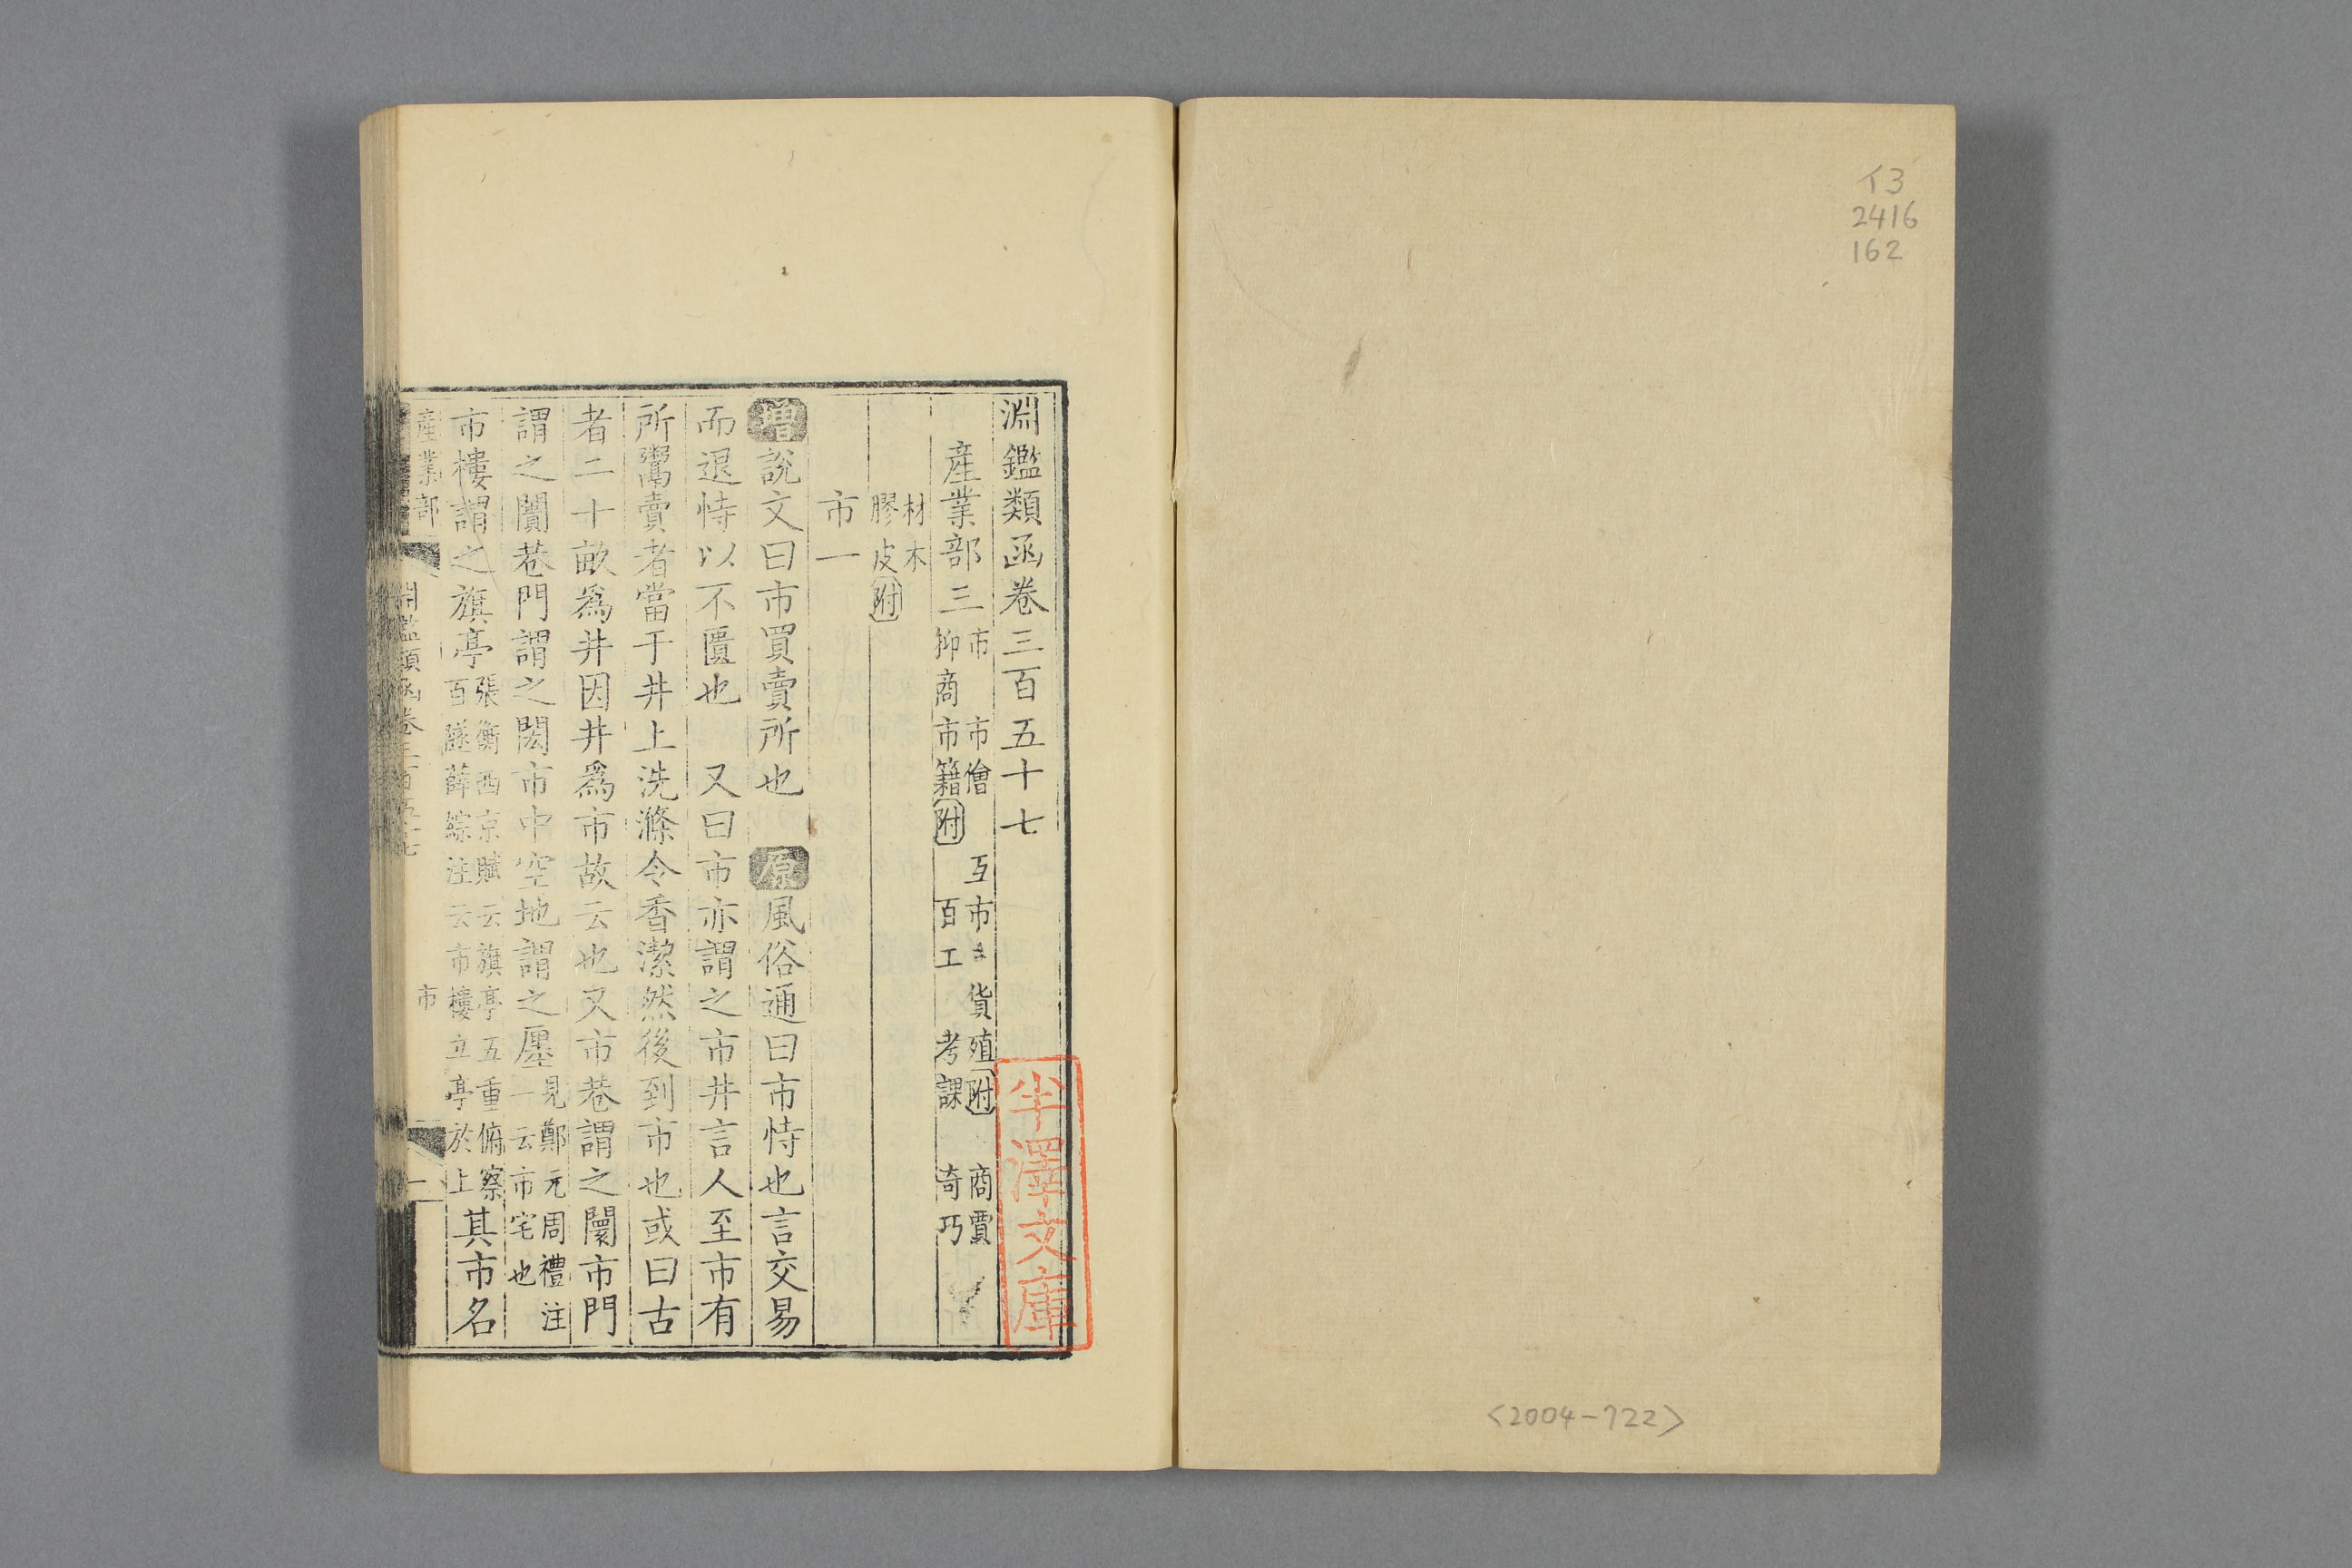 イ3
2416
162
<2004-722>
淵鑑類函卷三百五十七
産業部三 市 市儈 互市 貨殖附 商賈
抑商 市籍附 百工 考課 奇巧
材木
膠皮附
市一
增說文曰市買賣所也 原風俗通曰市恃也言交易
而退恃以不匱也 又曰市亦謂之市井言人至市有
所鬻賣者當于井上洗滌令香潔然後到市也或曰古
者二十畝爲井因井爲市故云也又市巷謂之闤市門
謂之闠巷門謂之閎市中空地謂之廛見鄭元周禮注
一云市宅也
市樓謂之旗亭張衡西京賦云旗亭五重俯察
百隧薛綜注云市樓立亭於上其市名
産業部 淵鑑類函卷三百五十七 市 一
半澤文庫